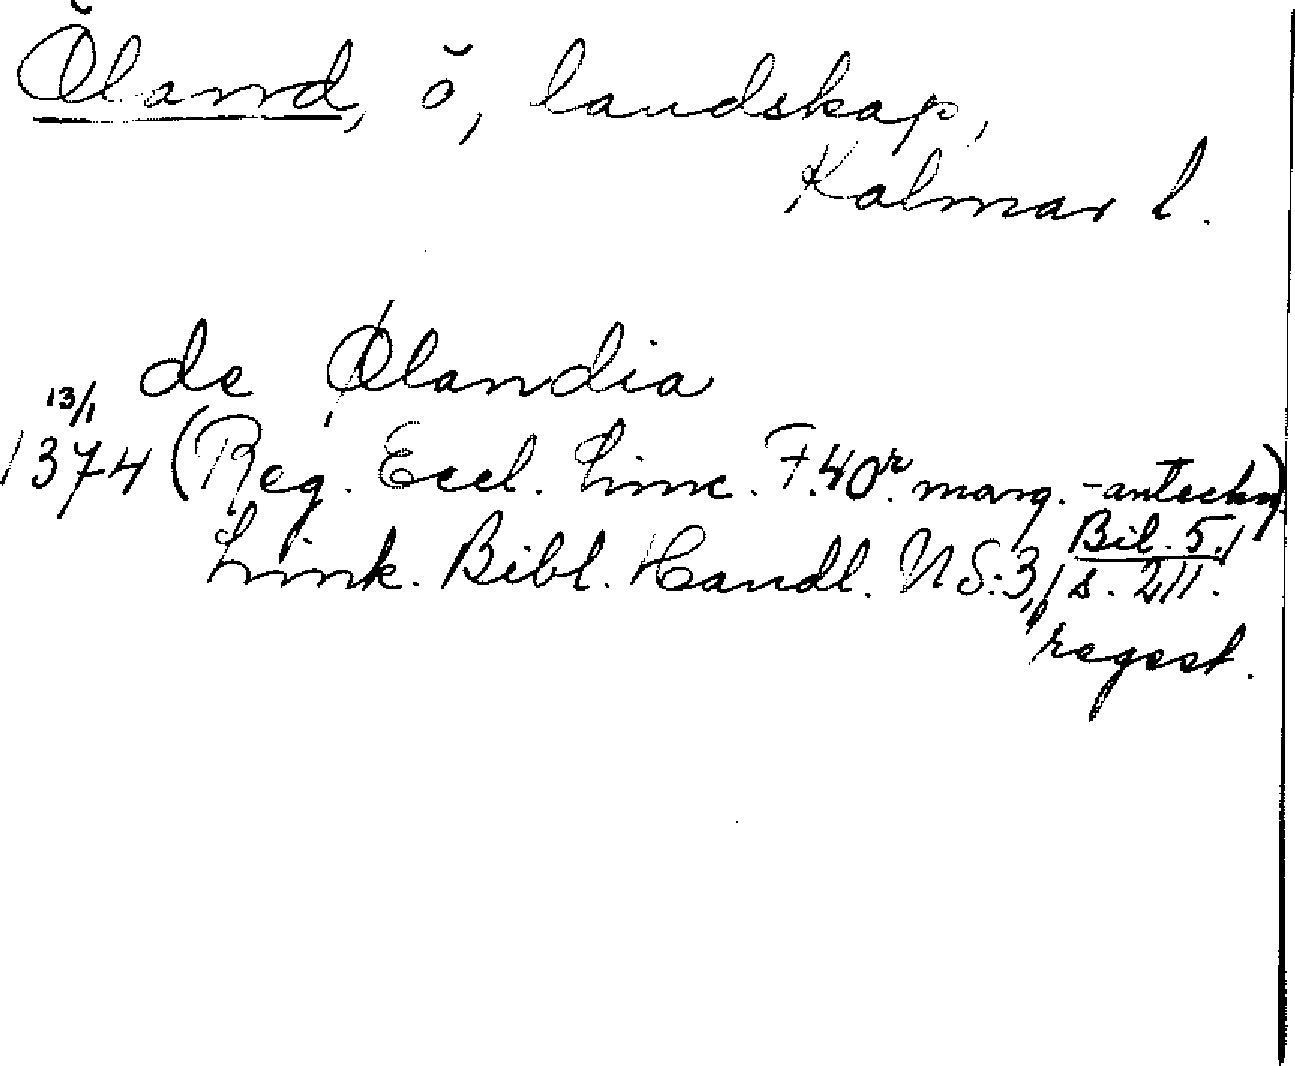 Öland, ö, landskap,
Kalmar l.
de Ølandia
13/1
1374 (Reg. Eccl. Linc. F.40r. marg.-anteckn)
Link. Bibl. Handl. NS:3, Bil. 5, s. 211.
regest.